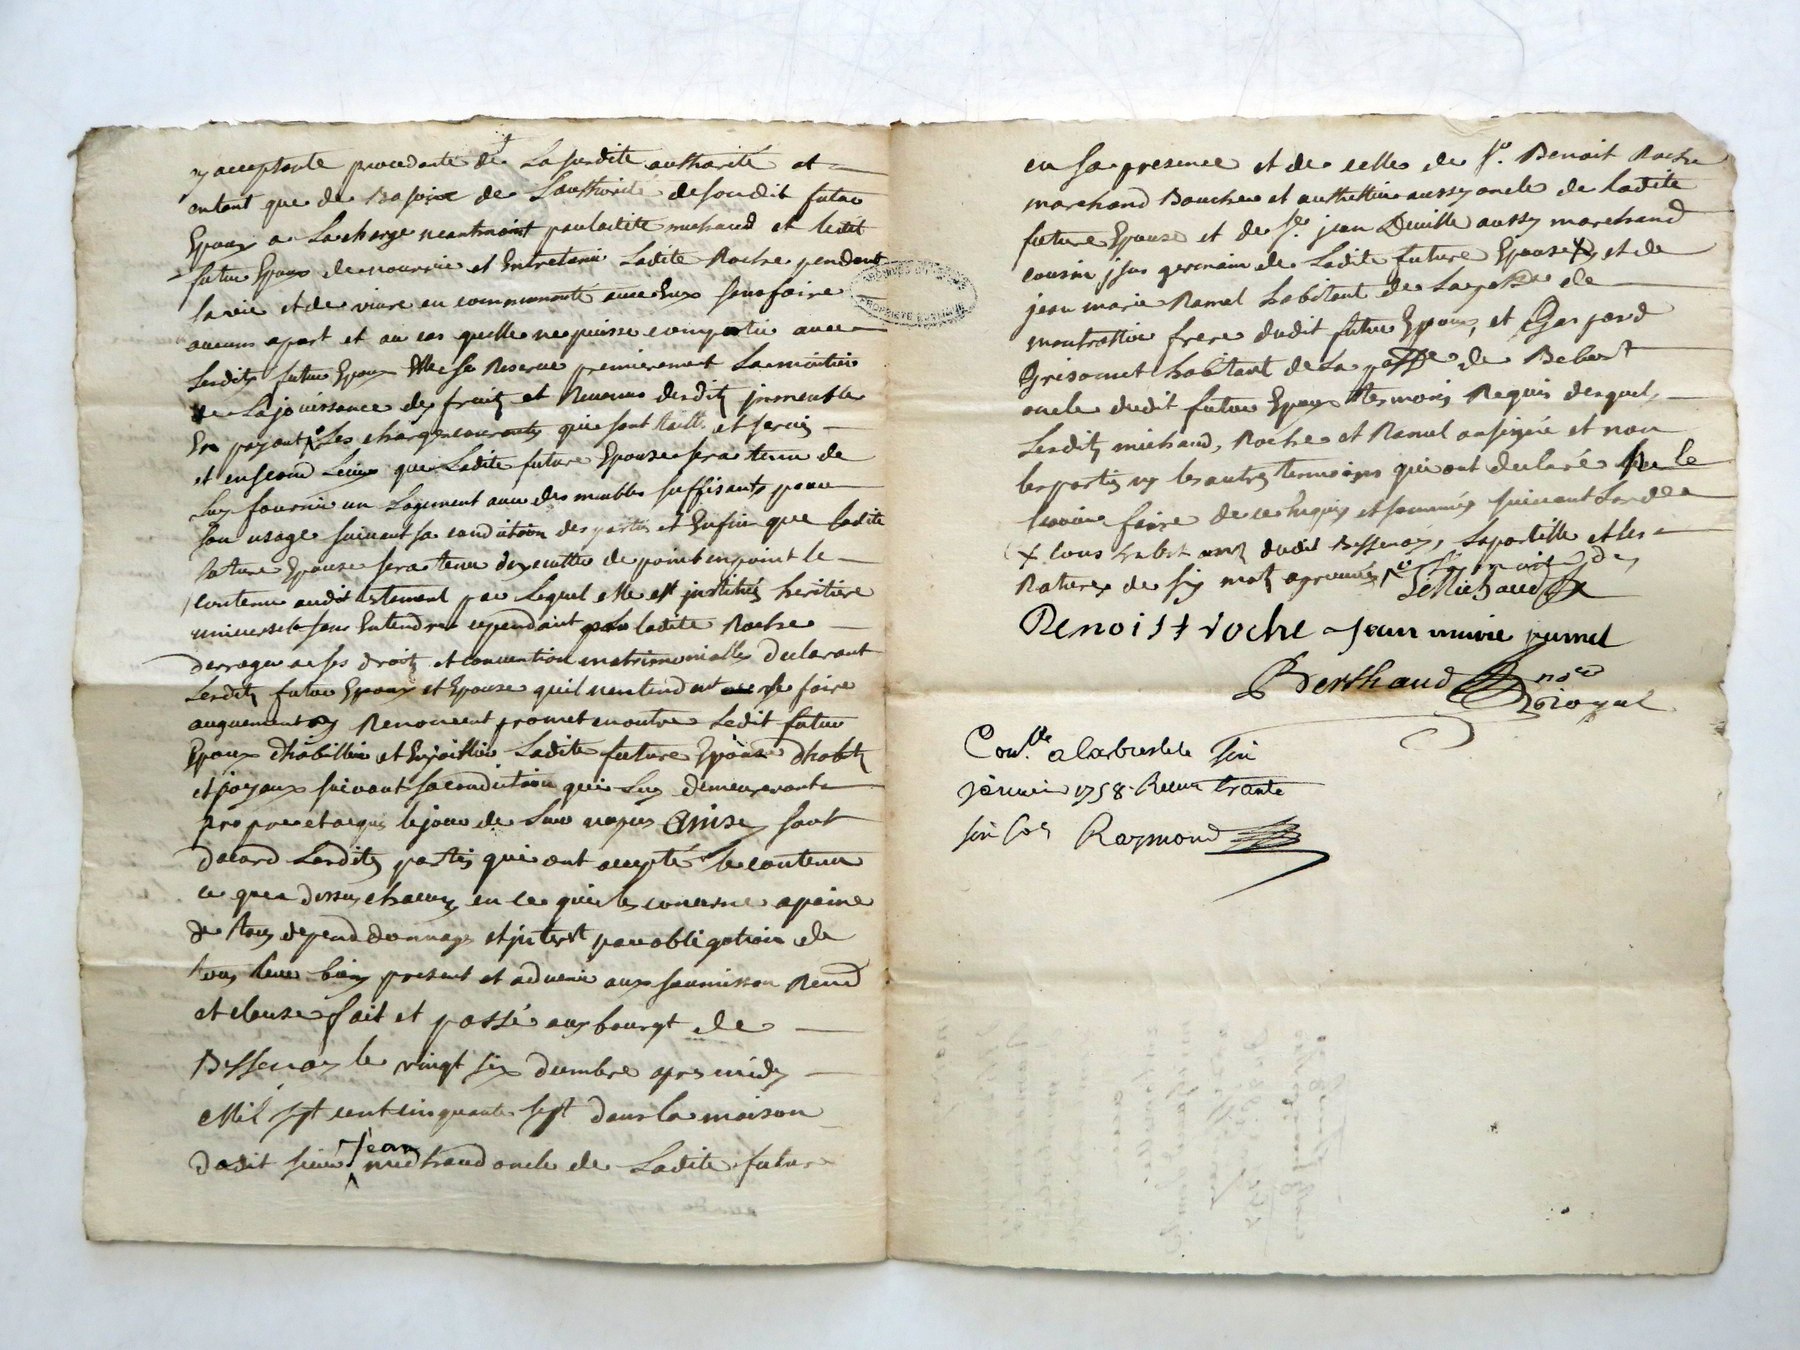 y acceptante procedante de La susdite authorité et
entant que de Besoinc de Lauthorité desondit futur
Epoux a La charge neantmoint par ladite michaud et ledit
futur Epoux de nourrir et Entretenir Ladite Roche pendant
sa vie et de vivre en communauté avec Eux sans faire
aucuns apart et au cas quelle ne puisse compatir avec
Lesdits futur Epoux Elle se Reserve premierement La moitié
de La jouissance des fruits et Revenus desdits jmmeuble
En payant Les charges courantes qui sont taille et servis
et en second Lieu que Ladite future Epouse sera tenu de
Luy fournir un Logement avec des meubles suffisants pour
son usage suivant sa condition des parties et Enfin que ladite
future Epouse sera tenu dexecutter de point en point le
contenu audit testament par Lequel elle est jnstituée heritiere
universelle sans Entendre cependant par ladite Roche
derroger a ses droits et convention matrimonialles declarant
Lesdits futur Epoux et Epouse quil nentendent se faire
augmentés y Renoncent promet en outre Ledit futur
Epoux dhabiller et Enjoailler Ladite future Epouse dhabits
et joyaux suivant sa condition qui Luy demeureront
propre et acquis le jour de Leur nopces Ainsy sont
dacord Lesdites parties qui ont accepté le contenu
ce que a dessus chacuns en ce qui les concerne a peine
de tous depend dommages et jnterest par obligation de
tous leur biens present et advenir aux soumission Rend
et clause fait et passé aux bourgt de
Bessenay le vingt six decembre apres midy
Mil sept cent cinquante sept dans la maison
dudit sieur Jean michaud oncle de Ladite future
en sa presence et de celle de Sr. Benoit Roche
marchand Boucher et authellier aussy oncle de ladite
future Epouse et de Sr. jean Deville aussy marchand
cousin jssus germain de Ladite future Epouse X et de
jean marie Ramel habitant de La psse de
montrottier frere dudit futur Epoux, et Gaspard
Grisonnet habitant de La psse de Bibost
oncle dudit futur Epoux temoins Requis desquels
Lesdits michaud, Roche et Ramel ont signé et non
les parties ny les autres temoins qui ont declaré ne le
scavoir faire de ce Enquis et sommés suivant Lordce
X tous trois dudit Bessenay, Lapostille et les
Ratures de six mots aprouvés
J Michaud
Benoist roche Jean marie ramel
Berthaud nore Royal
Conllé a larbresle le six
janvier 1758 Recu trante
six sols Raymond